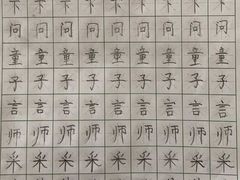 下 下 下 下 下 下 下 下
问 问 问 问 问 问 问 问
童 童 童 童 童 童 童 童
子 子 子 子 子 子 子 子
言 言 言 言 言 言 言 言
师 师 师 师 师 师 师 师
采 采 采 采 采 采 采 采